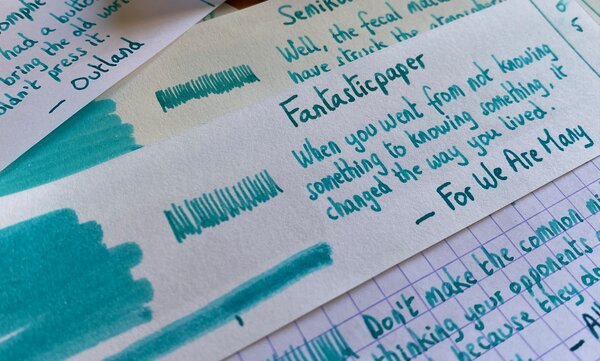 had a butto
bring the old wor
dn't press it.
— Outland
Well, the fecal
have struck the
Fantasticpaper
When you went from not knowing
something to knowing something, it
changed the way you lived.
— For We Are Many
Don't make the common mi
thinking your opponents
because they